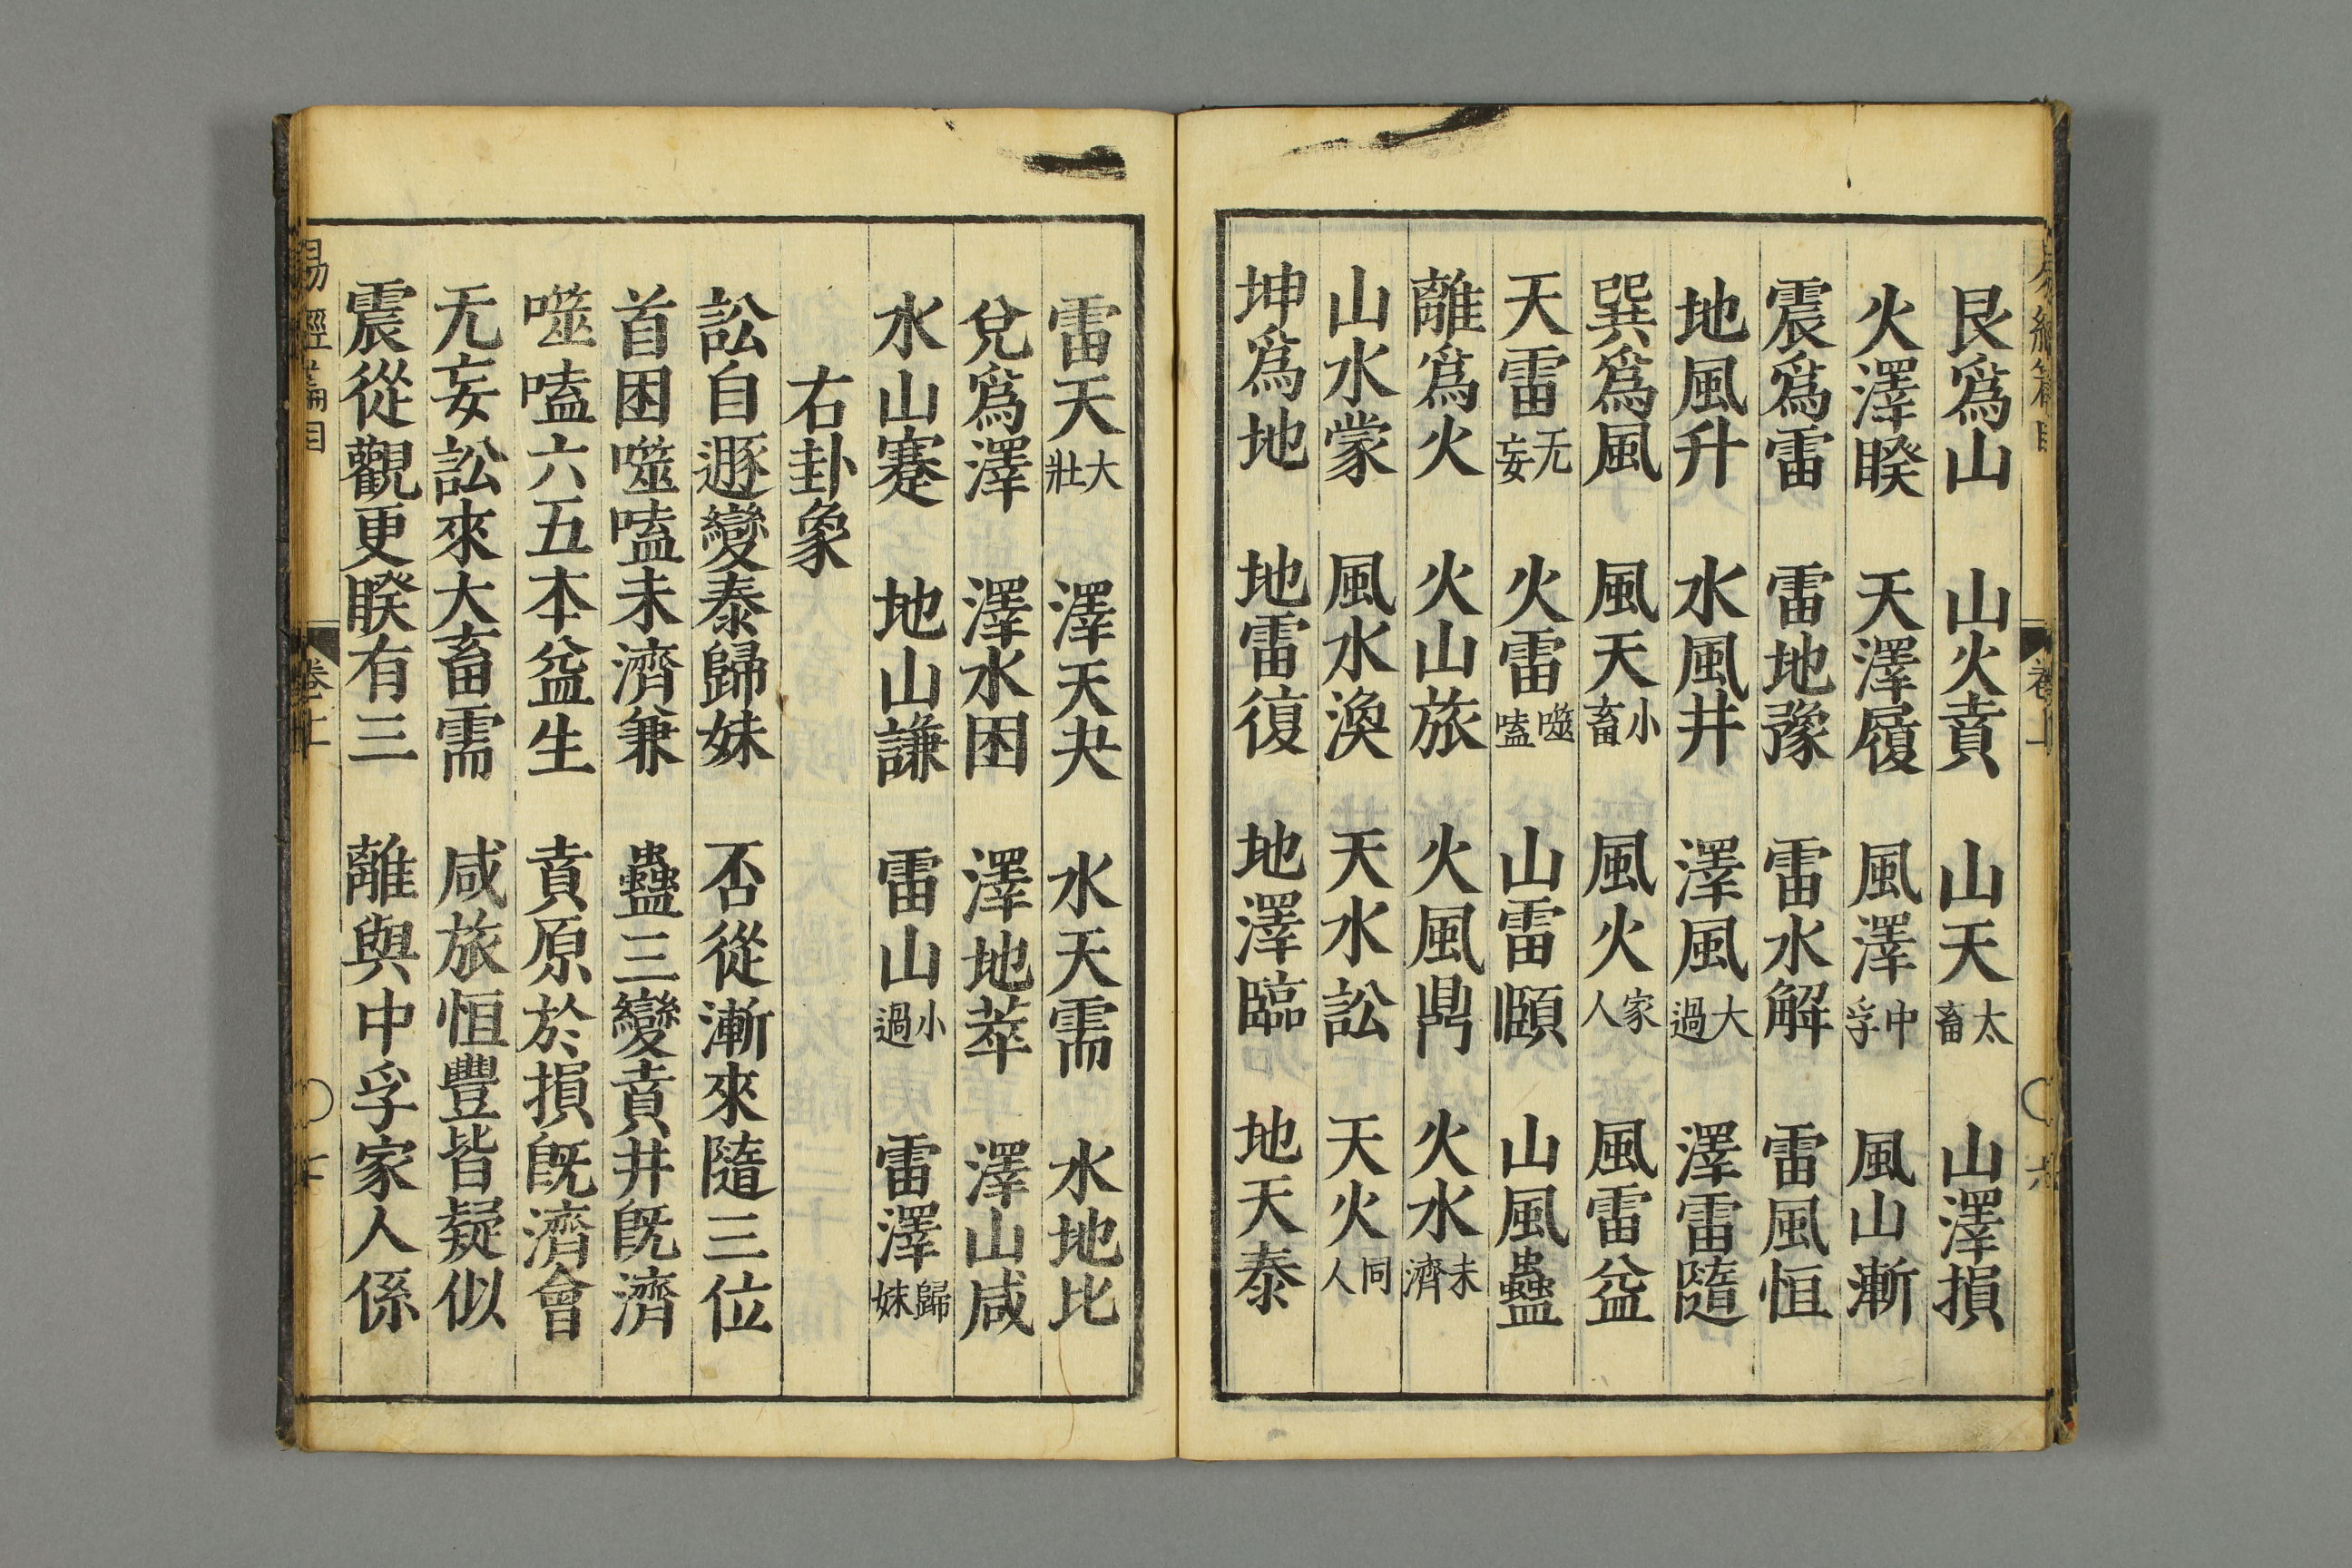 艮爲山　山火賁　山天太畜　山澤損
火澤睽　天澤履　風澤中孚　風山漸
震爲雷　雷地豫　雷水解　雷風恒
地風升　水風井　澤風大過　澤雷隨
巽爲風　風天小畜　風火家人　風雷益
天雷无妄　火雷噬嗑　山雷頤　山風蠱
離爲火　火山旅　火風鼎　火水未濟
山水蒙　風水渙　天水訟　天火同人
坤爲地　地雷復　地澤臨　地天泰
雷天大壯　澤天夬　水天需　水地比
兌爲澤　澤水困　澤地萃　澤山咸
水山蹇　地山謙　雷山小過　雷澤歸妹
右卦象
訟自遯變泰歸妹　否從漸來隨三位
首困噬嗑未濟兼　蠱三變賁井旣濟
噬嗑六五本益生　賁原於損旣濟會
无妄訟來大畜需　咸旅恒豐皆疑似
震從觀更睽有三　離與中孚家人係
易經篇目　卷上